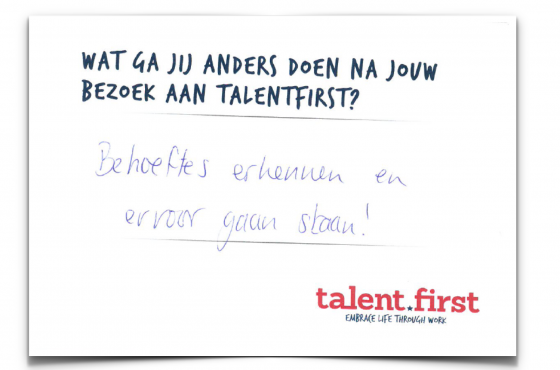 WAT GA JIJ ANDERS DOEN NA JOUW
BEZOEK AAN TALENTFIRST?
Behoeftes erkennen en
ervoor gaan staan!
talent.first
EMBRACE LIFE THROUGH WORK